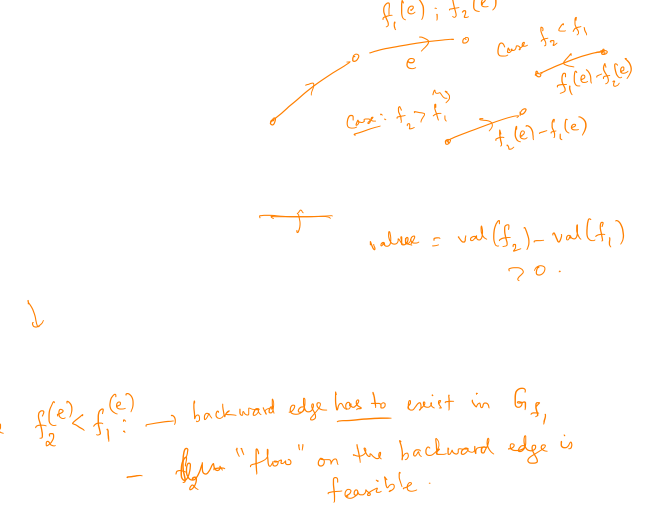 f₁(e) ; f₂(e)
e
Case f₂ < f₁
f₁(e) - f₂(e)
Case: f₂ > f₁
f₂(e) - f₁(e)
f
value = val(f₂) - val(f₁)
> 0.
f₂(e) < f₁(e) : → backward edge has to exist in G_f₁
- "flow" on the backward edge is
feasible.